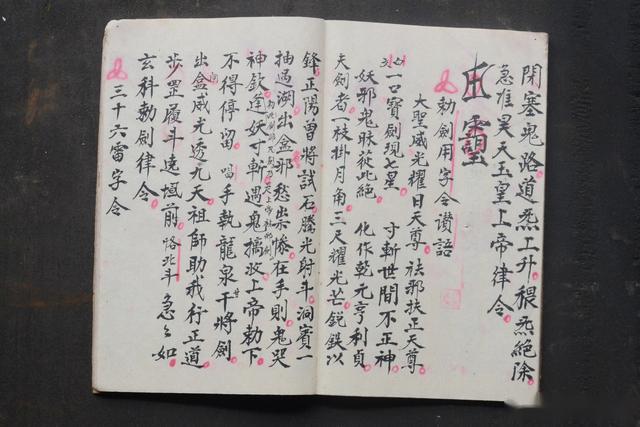 閉塞鬼路道炁上升穢炁絕除
急准昊天玉皇上帝律令
勅劍用字令讃語
大聖威光耀日天尊 祛邪扶正天尊
一口寶劍現七星 寸斬世間不正神
妖邪鬼昧從此絕 化作乾元亨利貞
夫劍者一枝掛月角三尺耀光芒銳鋏以
鋒正陽曽將試石騰光射斗洞賓一
抽過湖出盒邪愁祟慘在手則鬼哭
神欽逢妖寸斬遇鬼擒收上帝勅下
不得停留 手執龍泉干將劍
出盒威光透九天祖師助我行正道
步罡履斗遶壇前 北斗 急急如
玄科勅劍律令
三十六雷字令